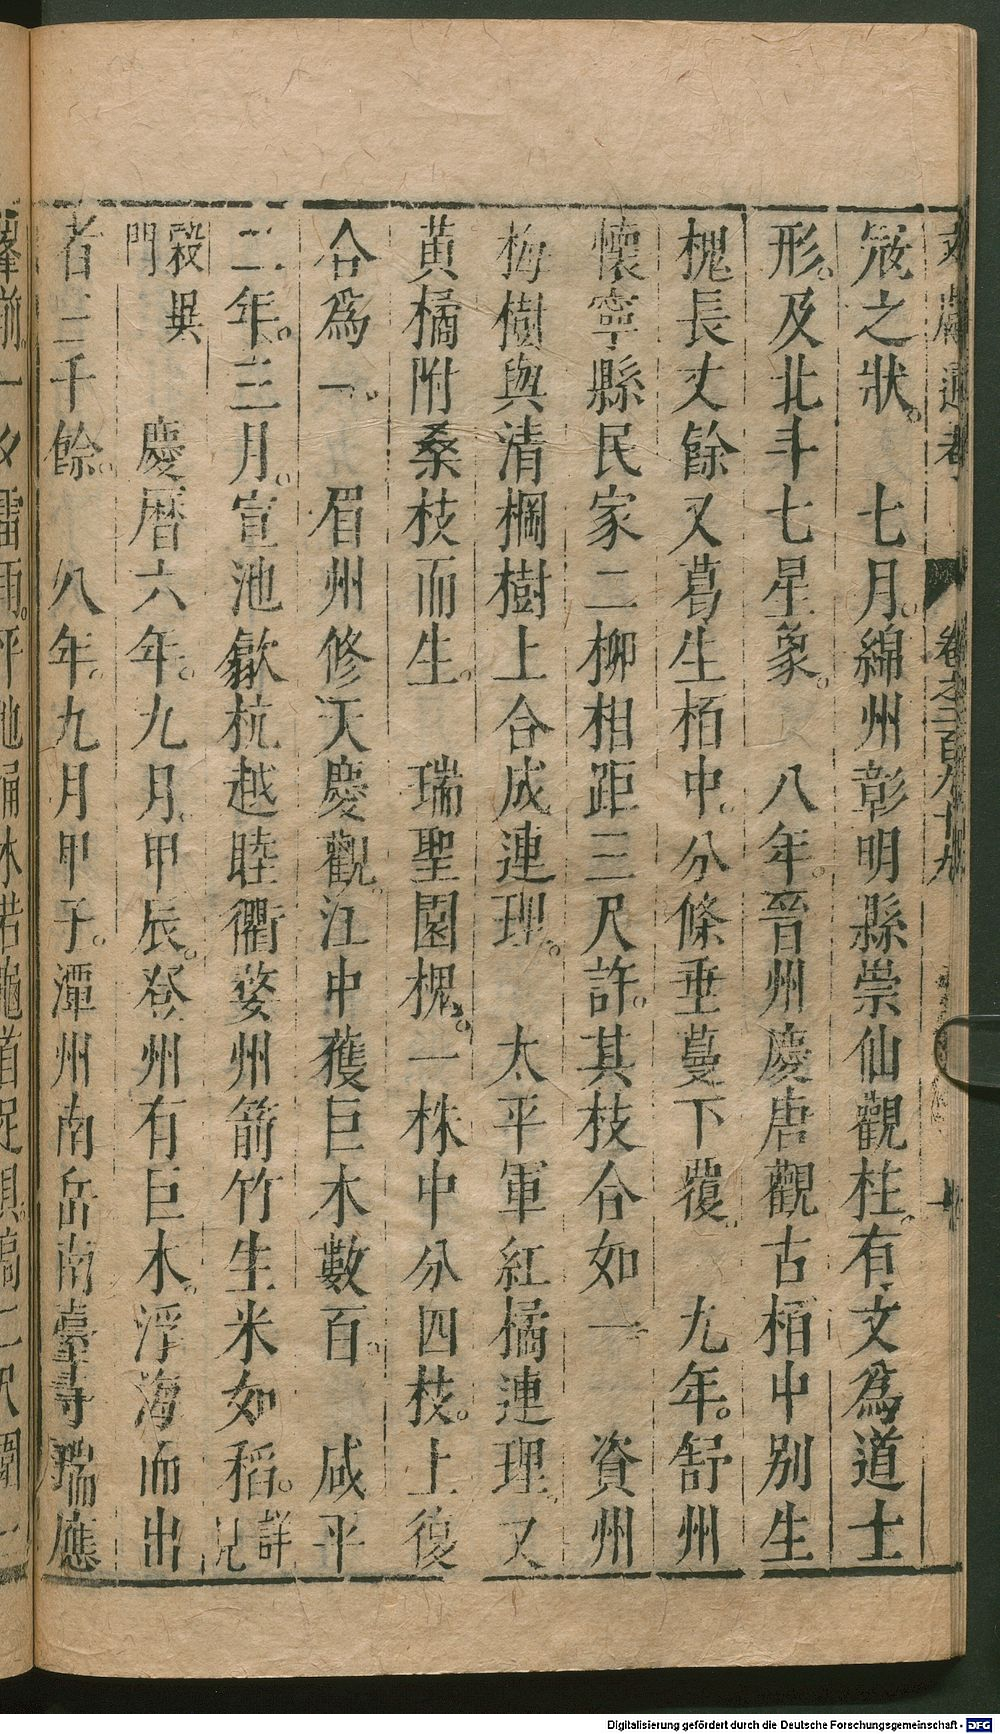 文獻通考 卷之二百九十九
冠之狀。 七月。綿州彰明縣崇仙觀柱。有文爲道士
形。及北斗七星象。 八年。晉州慶唐觀古栢中別生
槐長丈餘又葛生栢中。分條垂蔓下覆。 九年。舒州
懷寧縣民家二柳相距三尺許。其枝合如一 資州
梅樹與清棡樹上合成連理。 太平軍紅橘連理。又
黃橘附桑枝而生。 瑞聖園槐。一株中分四枝。上復
合爲一。 眉州修天慶觀。江中獲巨木數百。 咸平
二年。三月。宣池歙杭越睦衢婺州箭竹生米如稻。詳見
穀異門 慶曆六年。九月。甲辰。登州有巨木。浮海而出
者三千餘。 八年。九月甲子。潭州南岳南臺寺瑞應
Digitalisierung gefördert durch die Deutsche Forschungsgemeinschaft - DFG